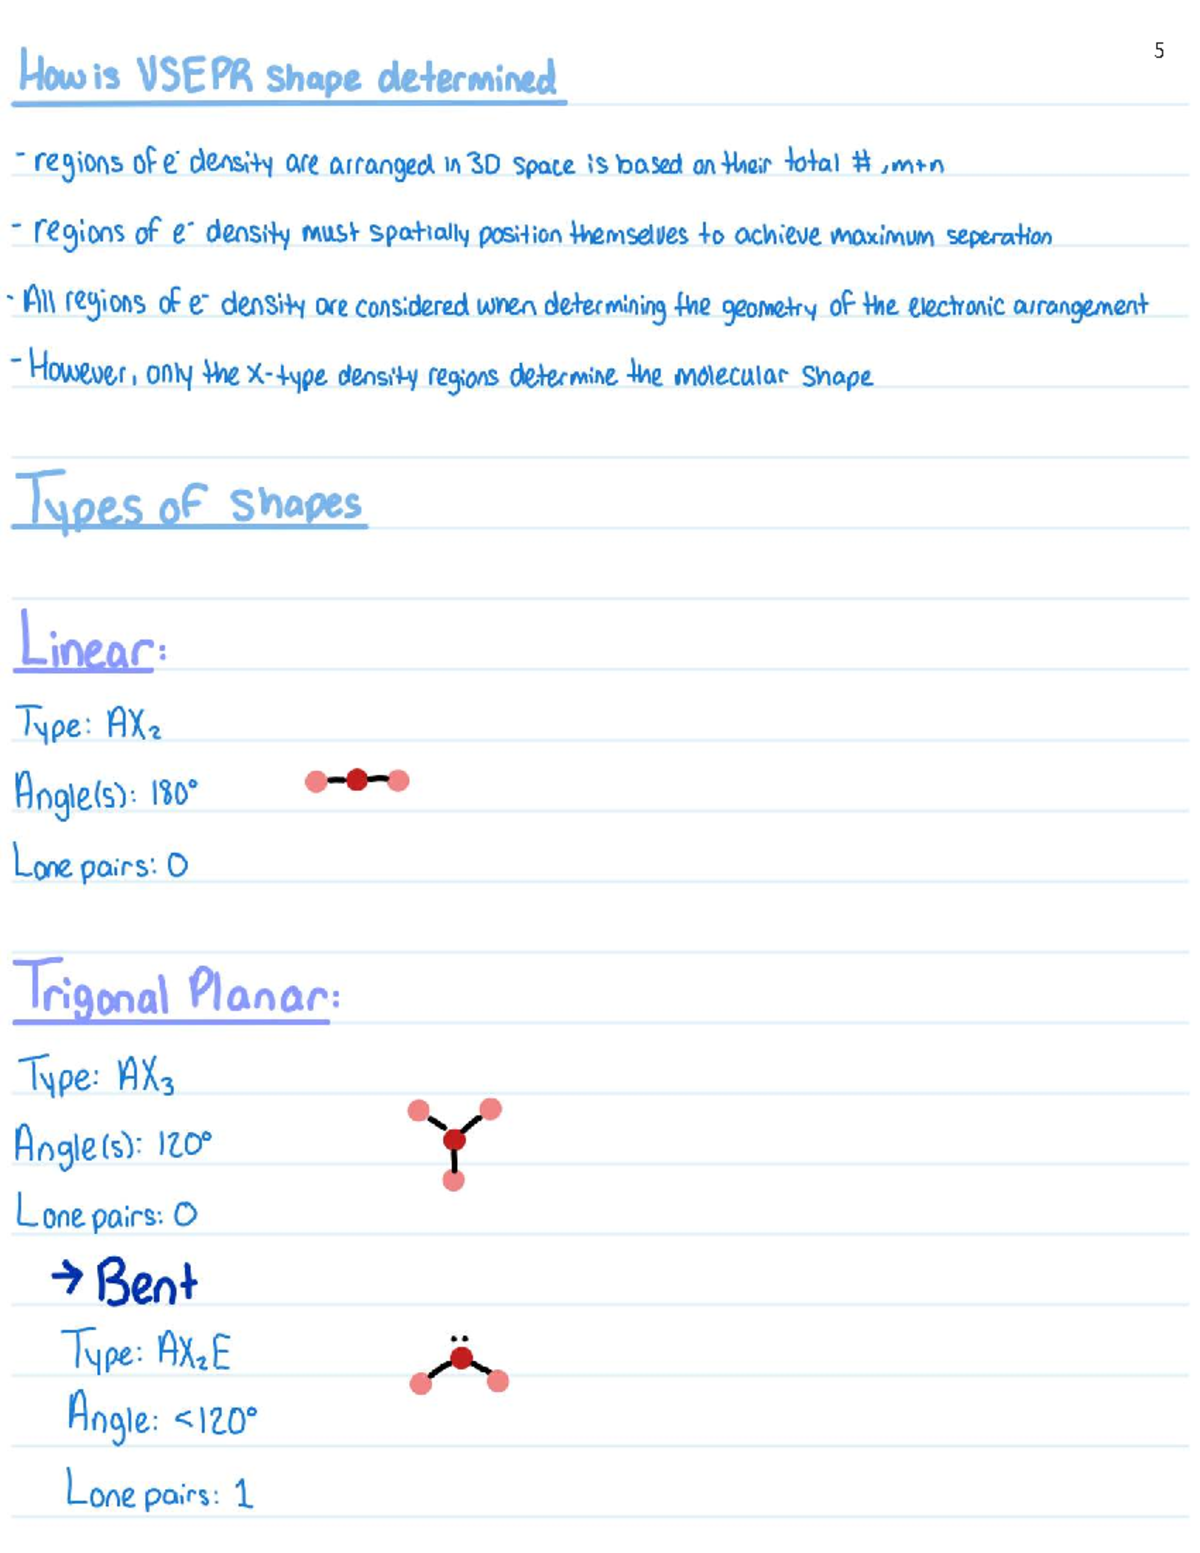 5
How is VSEPR shape determined
- regions of e⁻ density are arranged in 3D space is based on their total # , m+n
- regions of e⁻ density must spatially position themselves to achieve maximum seperation
- All regions of e⁻ density are considered when determining the geometry of the electronic arrangement
- However, only the x-type density regions determine the molecular shape
Types of shapes
Linear:
Type: AX₂
Angle(s): 180°
Lone pairs: 0
Trigonal Planar:
Type: AX₃
Angle(s): 120°
Lone pairs: 0
→ Bent
Type: AX₂E
Angle: <120°
Lone pairs: 1